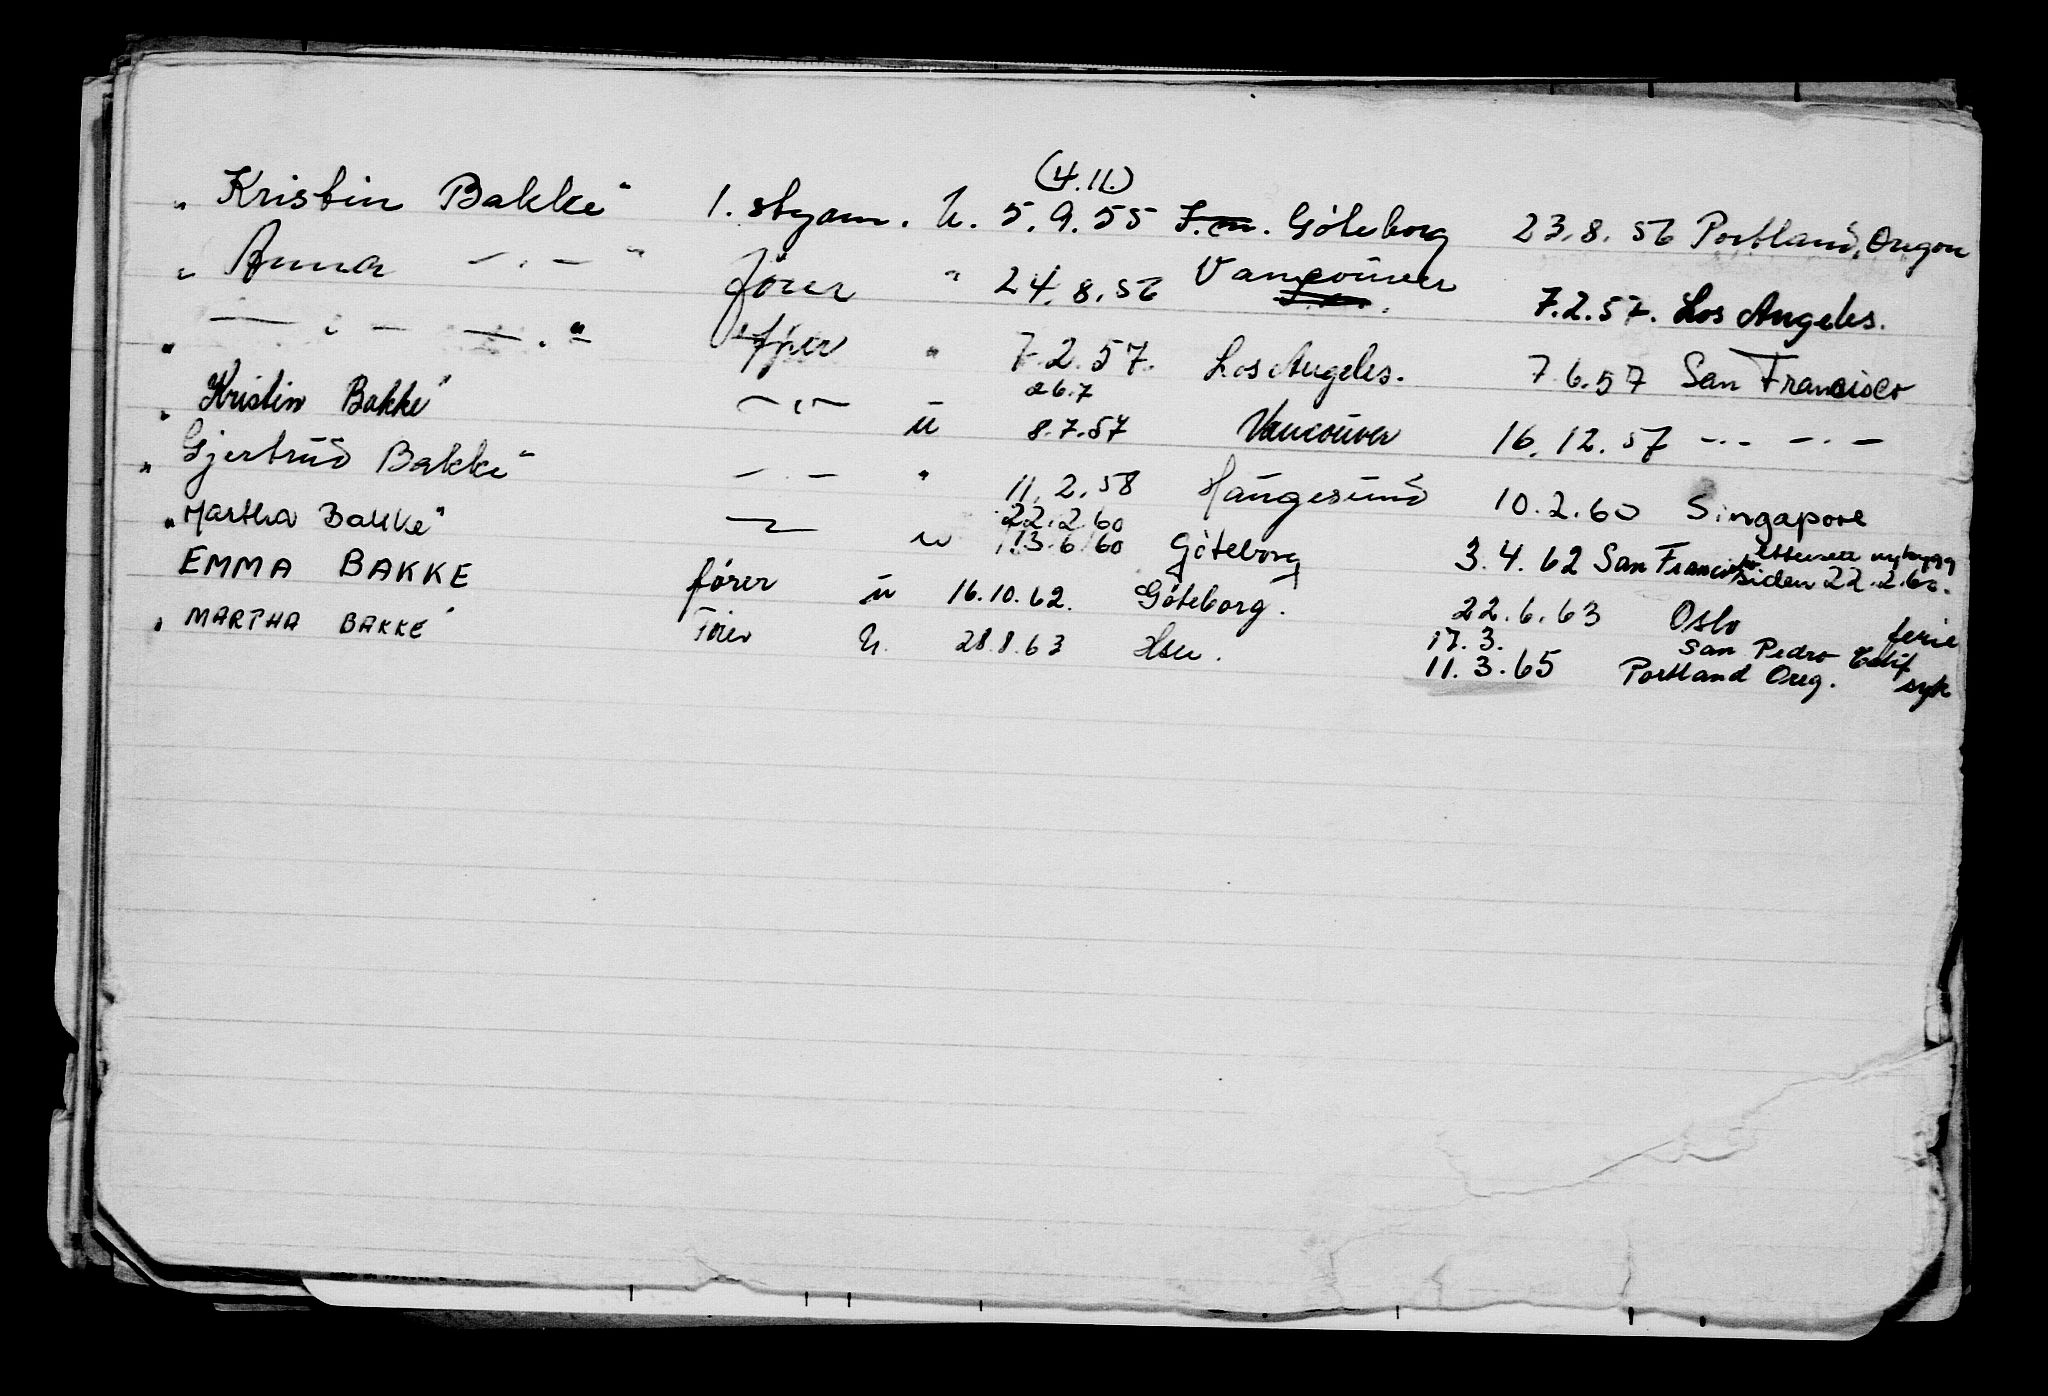 (4.11.)
„ Kristin Bakke" 1. styrm. U. 5.9.55 Göteborg 23.8.56 Portland, Oregon
„ Anna — . — " fører " 24.8.56 Vancouver 7.2.57. Los Angeles.
„ — . — — . " fører " 7.2.57. Los Angeles. 7.6.57 San Francisco
26.7
„ Kristin Bakke" — . — u 8.7.57 Vancouver 16.12.57 — . — — . —
„ Gjertrud Bakke" — . — " 11.2.58 Haugesund 10.2.60 Singapore
22.2.60
„ Martha Bakke" — " — u 13.6.60 Göteborg 3.4.62 San Francisco nybygg
siden 22.2.60.
EMMA BAKKE fører u 16.10.62. Göteborg. 22.6.63 Oslo ferie
17.3. San Pedro Calif
„ MARTHA BAKKE" Fører U. 28.8.63 Hsu. 11.3.65 Portland Oreg. syk